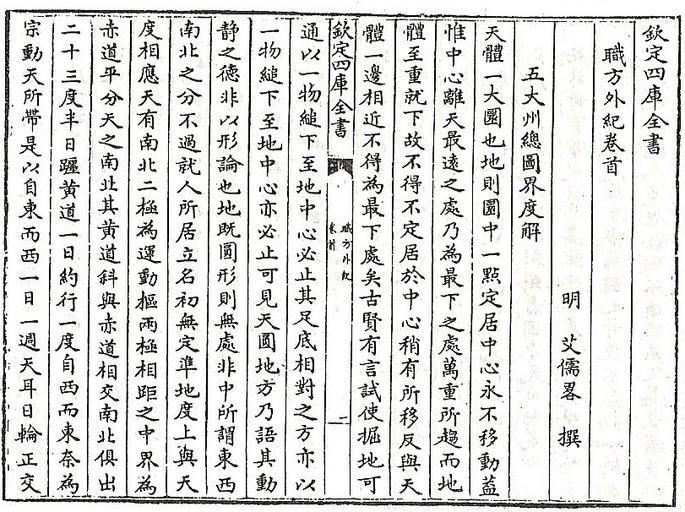 欽定四庫全書
職方外紀卷首
明 艾儒畧 撰
五大州總圖界度解
天體一大圜也地則圜中一點定居中心永不移動蓋
惟中心離天最遠之處乃為最下之處萬重所趨而地
體至重就下故不得不定居於中心稍有所移反與天
體一邊相近不得為最下處矣古賢有言試使掘地可
欽定四庫全書
職方外紀
卷首
二
通以一物縋下至地中心必止其足底相對之方亦以
一物縋下至地中心亦必止可見天圓地方乃語其動
静之德非以形論也地既圓形則無處非中所謂東西
南北之分不過就人所居立名初無定準地度上與天
度相應天有南北二極為運動樞兩極相距之中界為
赤道平分天之南北其黄道斜與赤道相交南北俱出
二十三度半日躔黄道一日約行一度自西而東奈為
宗動天所帶是以自東而西一日一週天耳日輪正交